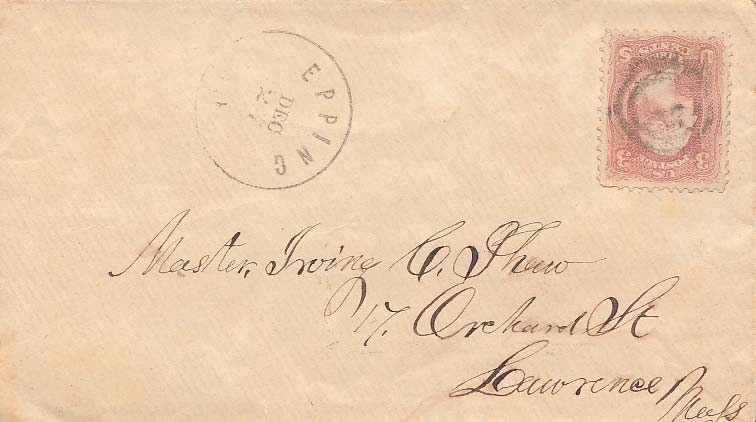 EPPING
DEC
U S
3 CENTS 3
U.S. POSTAGE
Master, Irving C. Shaw
17, Orchard St
Lawrence Mass